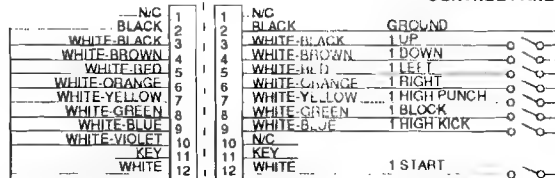 N/C 1 1 N/C
BLACK 2 2 BLACK GROUND
WHITE-BLACK 3 3 WHITE-BLACK 1 UP
WHITE-BROWN 4 4 WHITE-BROWN 1 DOWN
WHITE-RED 5 5 WHITE-RED 1 LEFT
WHITE-ORANGE 6 6 WHITE-ORANGE 1 RIGHT
WHITE-YELLOW 7 7 WHITE-YELLOW 1 HIGH PUNCH
WHITE-GREEN 8 8 WHITE-GREEN 1 BLOCK
WHITE-BLUE 9 9 WHITE-BLUE 1 HIGH KICK
WHITE-VIOLET 10 10 N/C
KEY 11 11 KEY
WHITE 12 12 WHITE 1 START